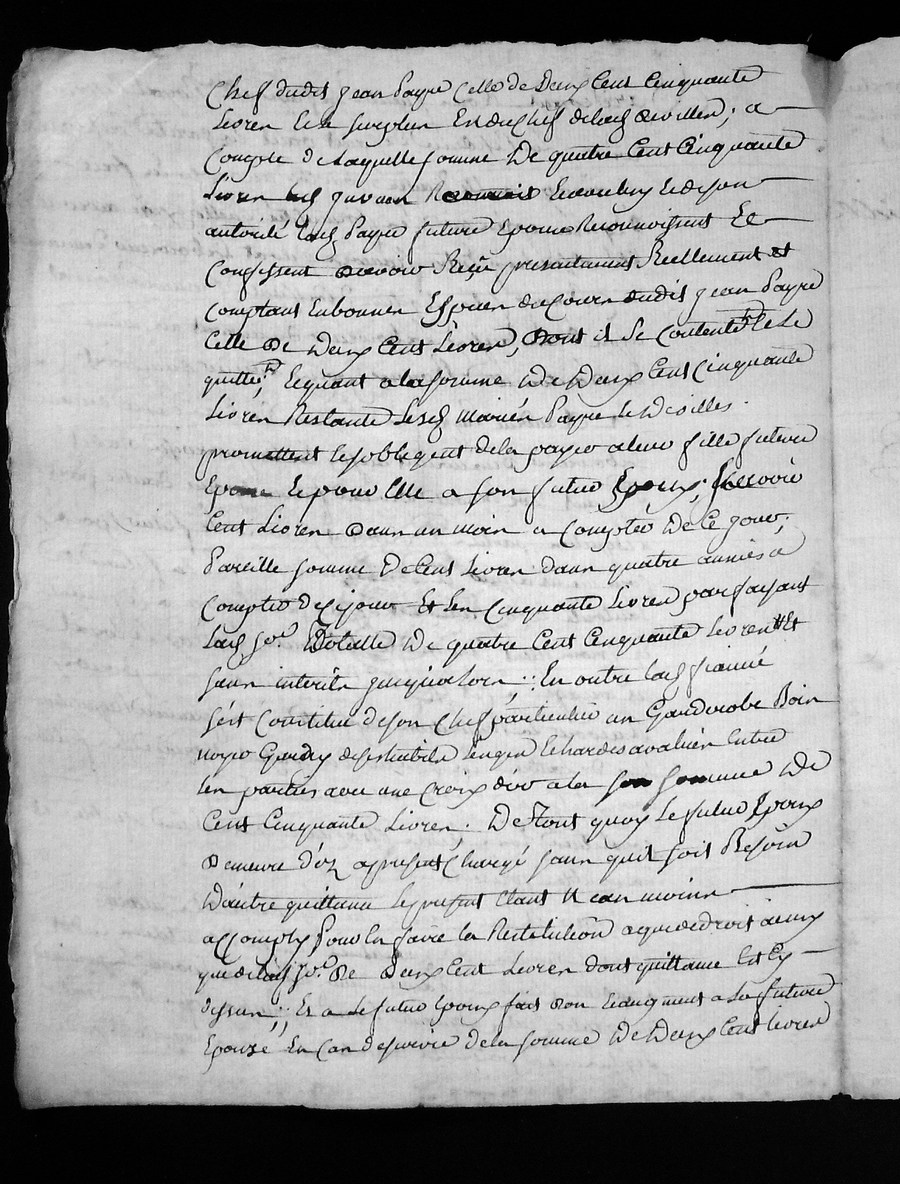 Chef dudit jean Payre Celle de Deux Cent Cinquante
Livres Et le surplus En du Chef de lad. Devilles; a
Compte de laquelle somme De quatre Cent Cinquante
Livres led.
autorité lad. Payre future Epouse Reconnoissent Et
Confessent avoir Reçu presentement Reellement et
Comptant En bonnes Especes du Cours dudit jean Payre
Celle de Deux Cent Livres, Dont il Se Contente et le
quitte, Et quant a la somme De Deux Cent Cinquante
Livres Restante Lesd. mariés Payre Et Devilles
promettent Et sobligent de la payer a leur fille future
Epouse Et pour Elle a son futur Epoux; Sçavoir
Cent Livres dans un mois a Compter De Ce jour;
Pareille somme De Cent Livres dans quatre années a
Compter de Ce jour Et Les Cinquante Livres parfaisant
Lad. so.e Dotalle De quatre Cent Cinquante Livres Et
sans interets jusqu'alors; En outre lad. fiancée
s'est Constitué de son Chef particulier un Garderobe Bois
noyer Garny de ses habits linges Et hardes avalués Entre
Les parties avec une Croix d'or a la so somme De
Cent Cinquante Livres; De Tout quoy Le futur Epoux
Demeure d'ors a present Chargé sans quil soit Besoin
D'autre quittance Le present Etant Neanmoins
accomply Pour En faire la Restitution a qui de droit ainsy
que de lad. so.e de deux Cent Livres dont quittance Est Cy
dessus; Et a Le futur Epoux fait don Et augment a La future
Epouze En Cas de survie de la somme De Deux Cent livres